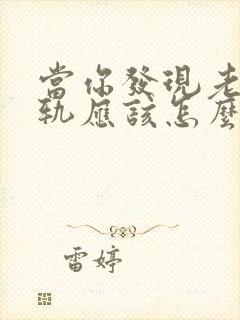 當你發現老
軌應該怎麼
雷婷